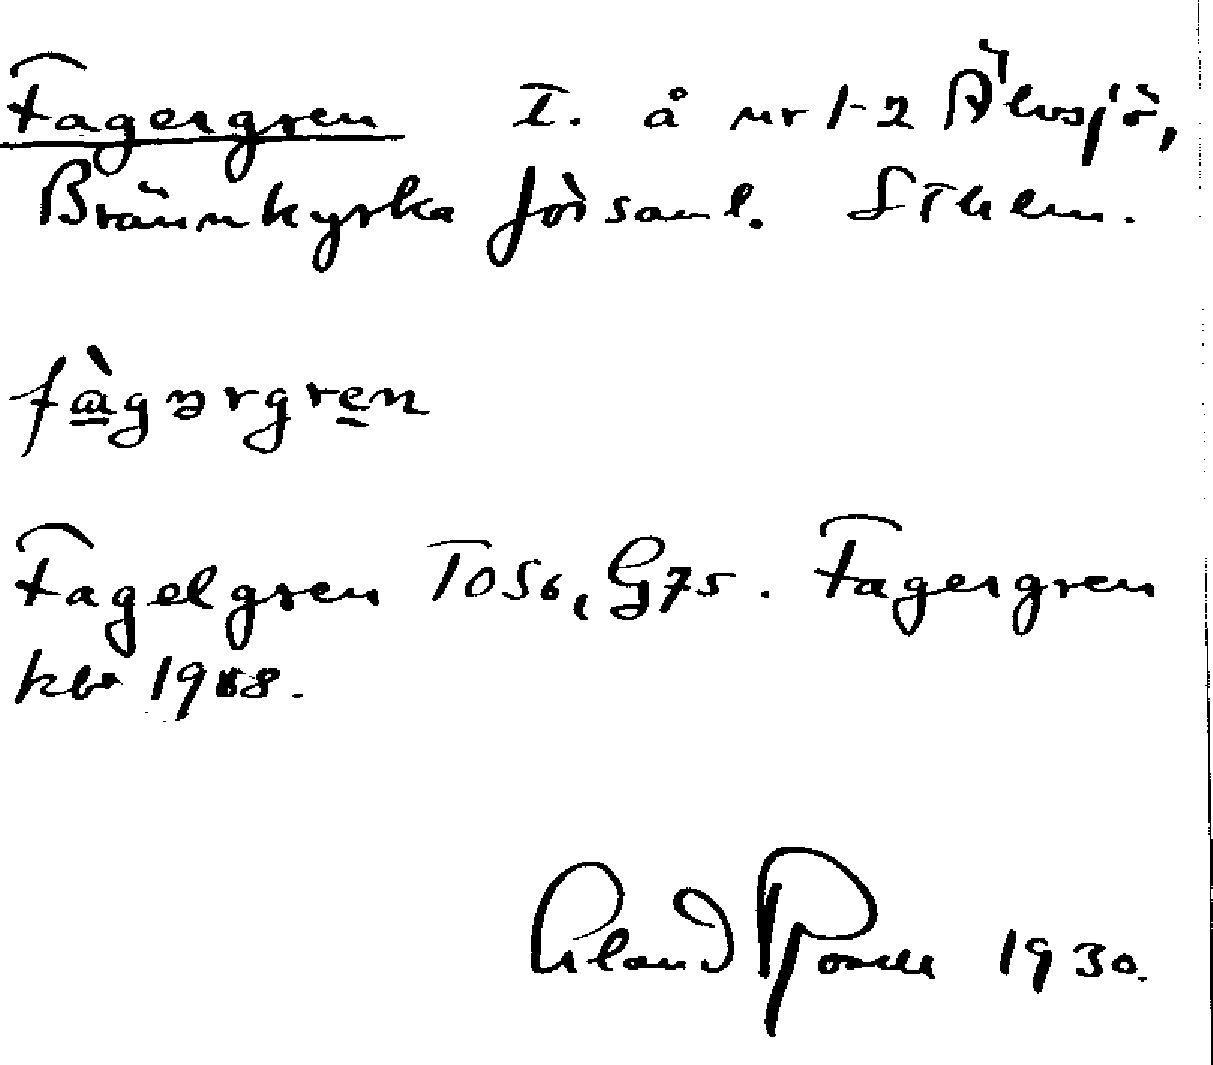 Fagergren T. å nr 1-2 Älvsjö,
Brännkyrka församl. Sthlm.
fàgərgren
Fagelgren T056, G75. Fagergren
kbr 1918.
Erland Rosell 1930.